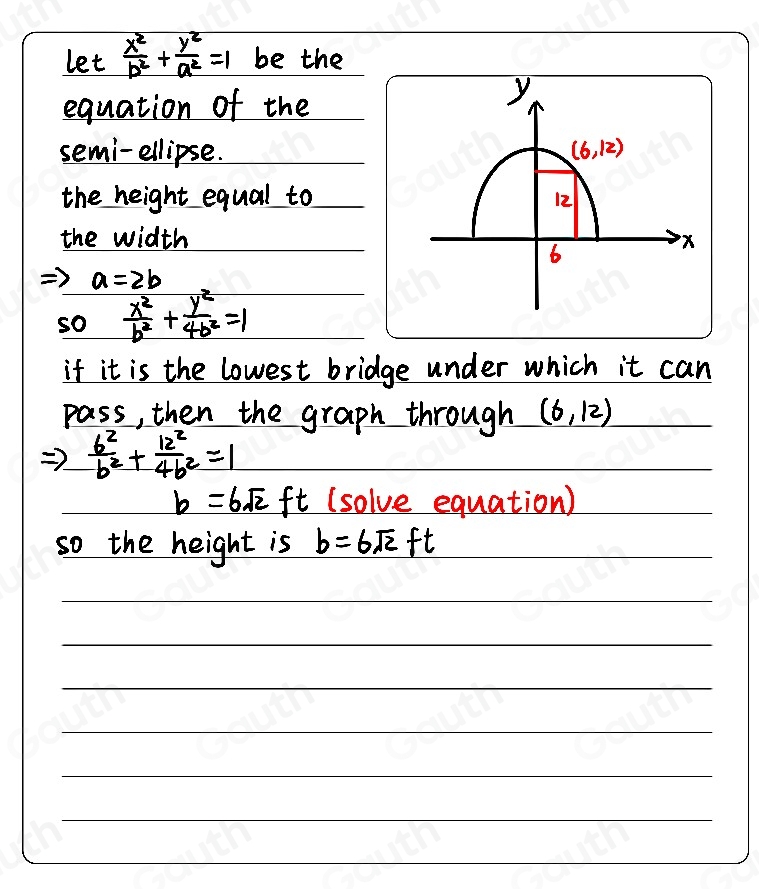 let x²/b² + y²/a² = 1 be the
equation of the
semi-ellipse.
the height equal to
the width
⇒ a = 2b
so x²/b² + y²/4b² = 1
if it is the lowest bridge under which it can
pass, then the graph through (6,12)
⇒ 6²/b² + 12²/4b² = 1
b = 6√2 ft (solve equation)
so the height is b = 6√2 ft
y
(6,12)
12
x
6
Gauth